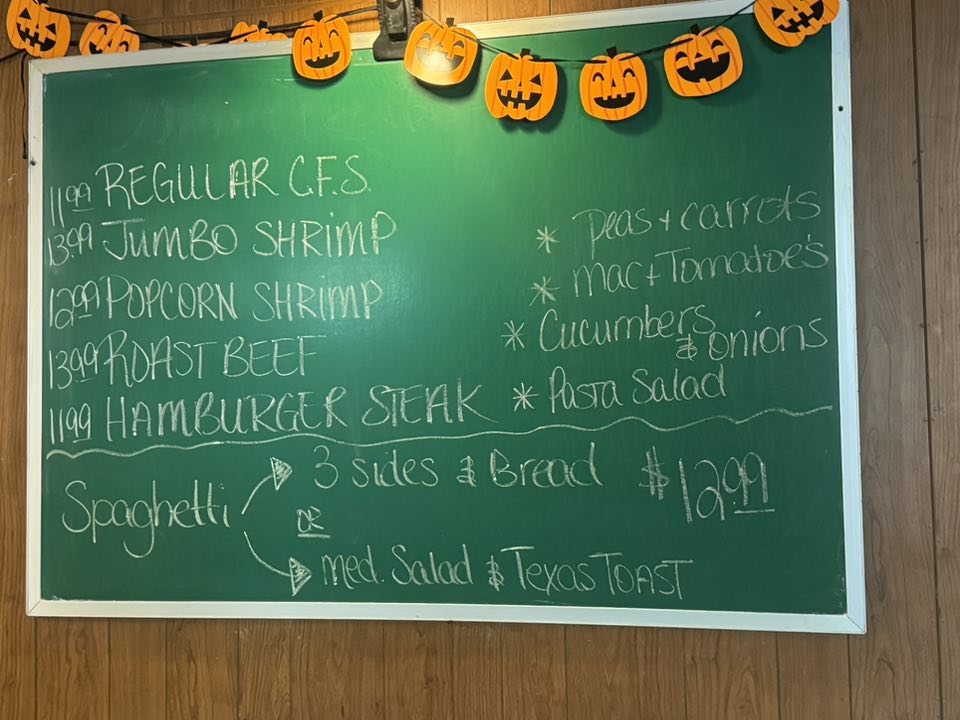 11.99 REGULAR C.F.S.
13.99 JUMBO SHRIMP
12.99 POPCORN SHRIMP
13.99 ROAST BEEF
11.99 HAMBURGER STEAK
* Peas + carrots
* Mac + Tomatoe's
* Cucumbers
& onions
* Pasta Salad
Spaghetti
3 sides & Bread
OR
med. Salad & Texas TOAST
$12.99